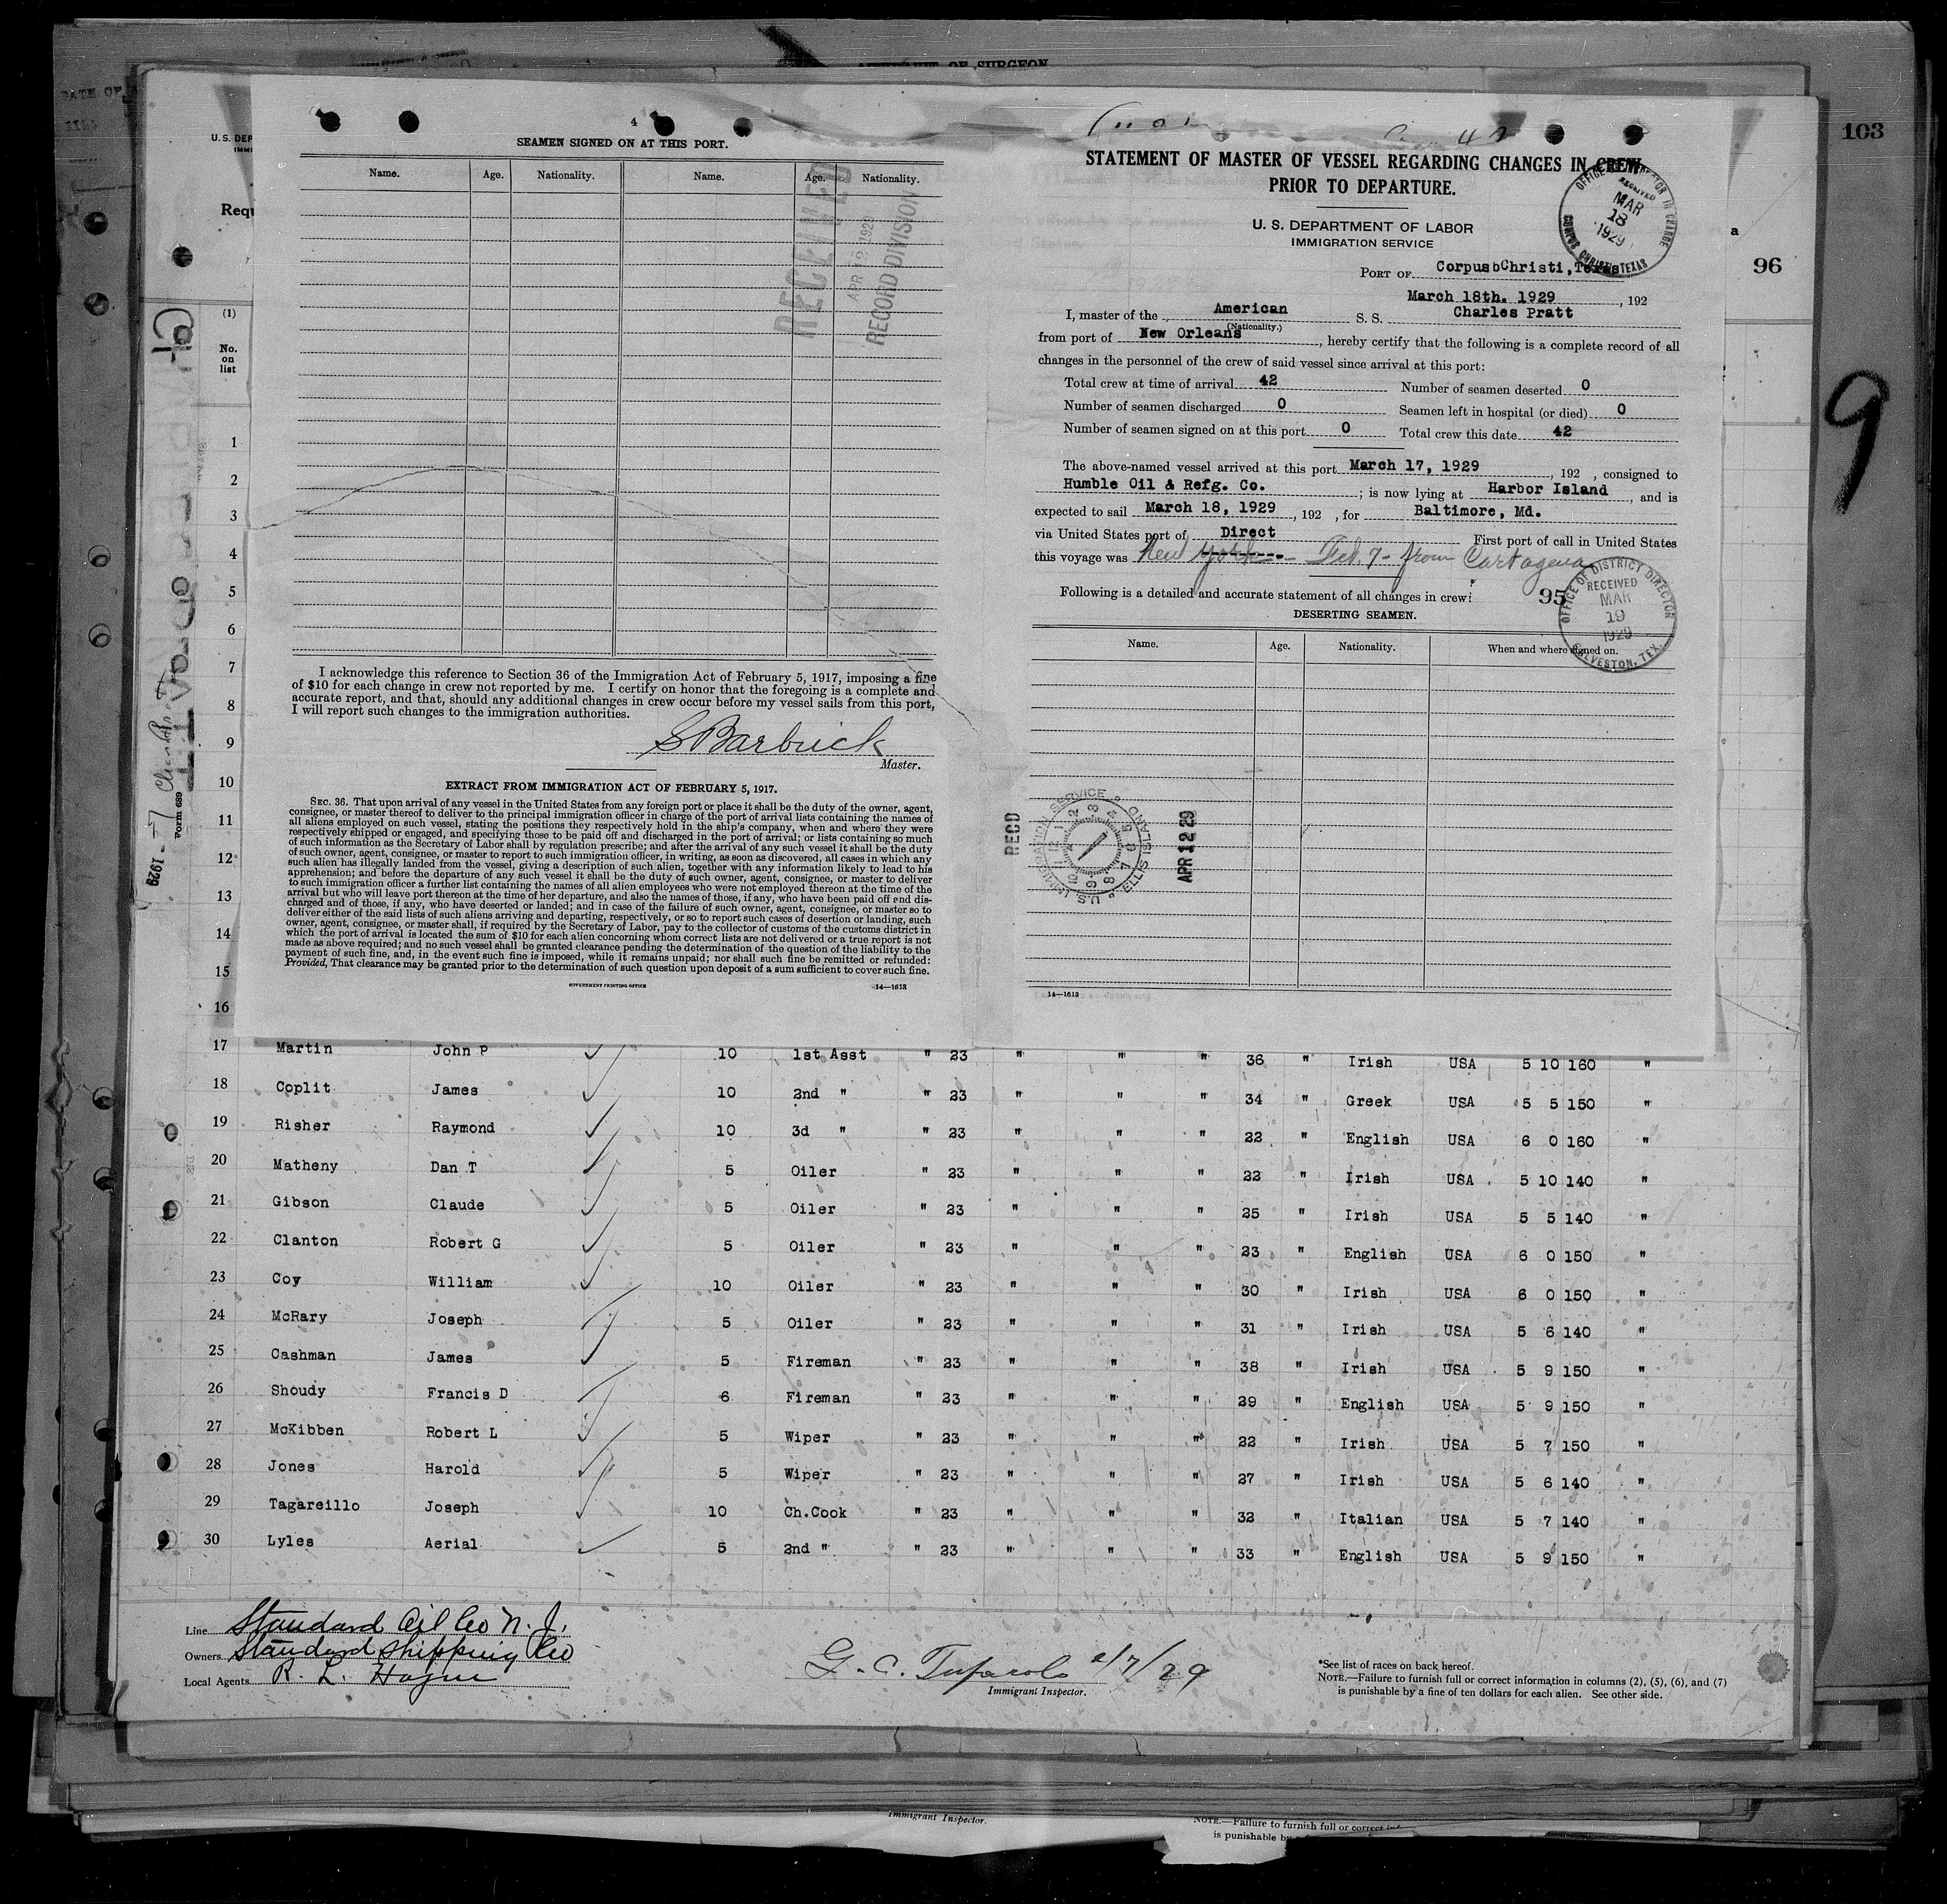 AFFIDAVIT OF SURGEON
DATE OF
103
96
a
9
U.S. DEP
IMMI
Requ
(1)
No.
on
list
1
2
3
4
5
6
7
8
9
10
11
12
13
14
15
16
Form 689
1929
4
SEAMEN SIGNED ON AT THIS PORT.
Name. Age. Nationality. Name. Age. Nationality.
RECEIVED
APR 12 1929
RECORD DIVISION
I acknowledge this reference to Section 36 of the Immigration Act of February 5, 1917, imposing a fine
of $10 for each change in crew not reported by me. I certify on honor that the foregoing is a complete and
accurate report, and that, should any additional changes in crew occur before my vessel sails from this port,
I will report such changes to the immigration authorities.
S Barbrick
Master.
EXTRACT FROM IMMIGRATION ACT OF FEBRUARY 5, 1917.
SEC. 36. That upon arrival of any vessel in the United States from any foreign port or place it shall be the duty of the owner, agent,
consignee, or master thereof to deliver to the principal immigration officer in charge of the port of arrival lists containing the names of
all aliens employed on such vessel, stating the positions they respectively hold in the ship's company, when and where they were
respectively shipped or engaged, and specifying those to be paid off and discharged in the port of arrival; or lists containing so much
of such information as the Secretary of Labor shall by regulation prescribe; and after the arrival of any such vessel it shall be the duty
of such owner, agent, consignee, or master to report to such immigration officer, in writing, as soon as discovered, all cases in which any
such alien has illegally landed from the vessel, giving a description of such alien, together with any information likely to lead to his
apprehension; and before the departure of any such vessel it shall be the duty of such owner, agent, consignee, or master to deliver
to such immigration officer a further list containing the names of all alien employees who were not employed thereon at the time of the
arrival but who will leave port thereon at the time of her departure, and also the names of those, if any, who have been paid off and dis-
charged and of those, if any, who have deserted or landed; and in case of the failure of such owner, agent, consignee, or master so to
deliver either of the said lists of such aliens arriving and departing, respectively, or so to report such cases of desertion or landing, such
owner, agent, consignee, or master shall, if required by the Secretary of Labor, pay to the collector of customs of the customs district in
which the port of arrival is located the sum of $10 for each alien concerning whom correct lists are not delivered or a true report is not
made as above required; and no such vessel shall be granted clearance pending the determination of the question of the liability to the
payment of such fine, and, in the event such fine is imposed, while it remains unpaid; nor shall such fine be remitted or refunded:
Provided, That clearance may be granted prior to the determination of such question upon deposit of a sum sufficient to cover such fine.
GOVERNMENT PRINTING OFFICE 14—1613
STATEMENT OF MASTER OF VESSEL REGARDING CHANGES IN CREW
PRIOR TO DEPARTURE.
U. S. DEPARTMENT OF LABOR
IMMIGRATION SERVICE
RECEIVED
MAR
18
1929
CORPUS CHRISTI TEXAS
PORT OF CorpusbChristi, Texas
March 18th. 1929, 192
I, master of the American S. S. Charles Pratt
(Nationality.)
from port of New Orleans, hereby certify that the following is a complete record of all
changes in the personnel of the crew of said vessel since arrival at this port:
Total crew at time of arrival 42 Number of seamen deserted 0
Number of seamen discharged 0 Seamen left in hospital (or died) 0
Number of seamen signed on at this port 0 Total crew this date 42
The above-named vessel arrived at this port March 17, 1929, 192 , consigned to
Humble Oil & Refg. Co. ; is now lying at Harbor Island, and is
expected to sail March 18, 1929, 192 , for Baltimore, Md.
via United States port of Direct First port of call in United States
this voyage was New York --- Feb. 7 - from Cartagena
Following is a detailed and accurate statement of all changes in crew:
95
OFFICE OF DISTRICT DIRECTOR
RECEIVED
MAR
19
1929
GALVESTON, TEX.
DESERTING SEAMEN.
Name. Age. Nationality. When and where signed on.
RECD
U.S. IMMIGRATION SERVICE ELLIS ISLAND
APR 12 29
14—1613
17 Martin John P 10 1st Asst " 23 " " " 36 " Irish USA 5 10 160 "
18 Coplit James 10 2nd " " 23 " " " 34 " Greek USA 5 5 150 "
19 Risher Raymond 10 3d " " 23 " " " 22 " English USA 6 0 160 "
20 Matheny Dan T 5 Oiler " 23 " " " 22 " Irish USA 5 10 140 "
21 Gibson Claude 5 Oiler " 23 " " " 25 " Irish USA 5 5 140 "
22 Clanton Robert G 5 Oiler " 23 " " " 23 " English USA 6 0 150 "
23 Coy William 10 Oiler " 23 " " " 30 " Irish USA 6 0 150 "
24 McRary Joseph 5 Oiler " 23 " " " 31 " Irish USA 5 6 140 "
25 Cashman James 5 Fireman " 23 " " " 38 " Irish USA 5 9 150 "
26 Shoudy Francis D 6 Fireman " 23 " " " 29 " English USA 5 9 150 "
27 McKibben Robert L 5 Wiper " 23 " " " 22 " Irish USA 5 7 150 "
28 Jones Harold 5 Wiper " 23 " " " 27 " Irish USA 5 6 140 "
29 Tagareillo Joseph 10 Ch.Cook " 23 " " " 32 " Italian USA 5 7 140 "
30 Lyles Aerial 5 2nd " " 23 " " " 33 " English USA 5 9 150 "
Line Standard Oil Co N. J.
Owners Standard Shipping Co
Local Agents R. L. Hague
G. C. 2/7/29
Immigrant Inspector.
*See list of races on back hereof.
NOTE.—Failure to furnish full or correct information in columns (2), (5), (6), and (7)
is punishable by a fine of ten dollars for each alien. See other side.
Immigrant Inspector.
NOTE.—Failure to furnish full or correct
is punishable by